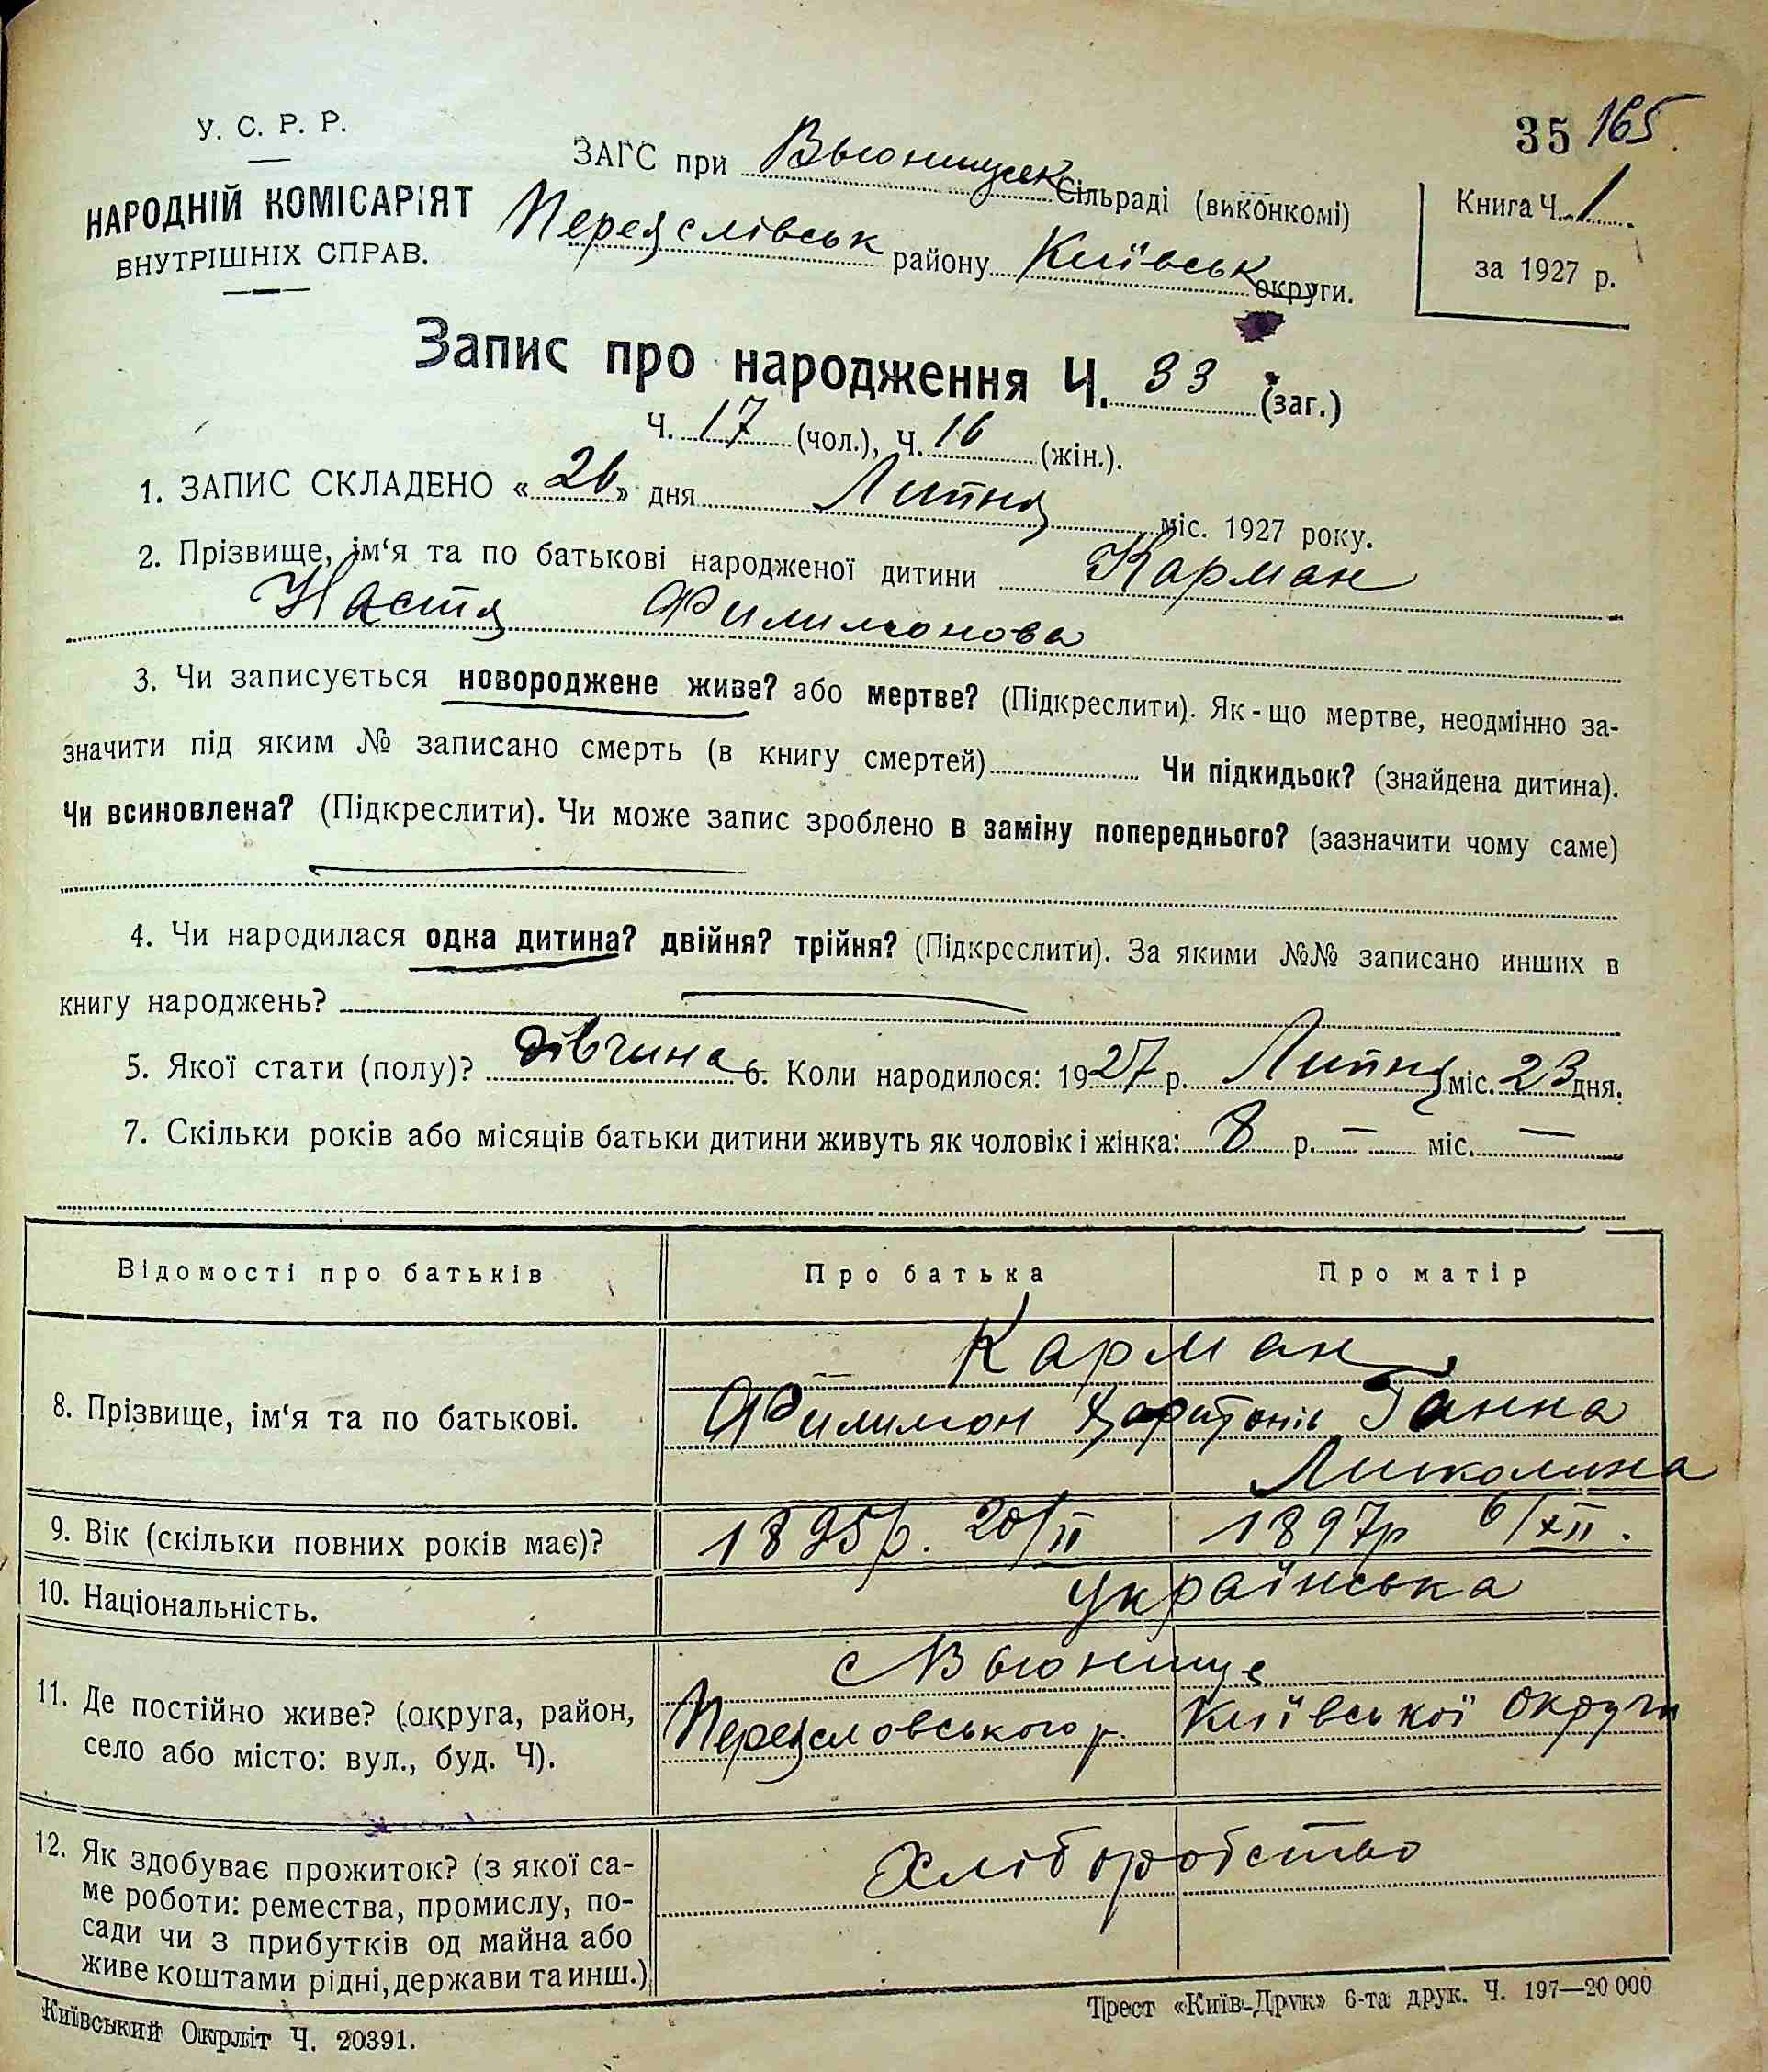 35 165.
У. С. Р. Р.
НАРОДНІЙ КОМІСАРІЯТ
ВНУТРІШНІХ СПРАВ.
ЗАГС при Вьюнищек Сільраді (виконкомі)
Переяслівськ району Київськ округи.
Книга Ч. 1
за 1927 р.
Запис про народження Ч. 33 (заг.)
Ч. 17 (чол.), Ч. 16 (жін.).
1. ЗАПИС СКЛАДЕНО «26» дня Липня міс. 1927 року.
2. Прізвище, ім‘я та по батькові народженої дитини Карман
Настя Филимонова
3. Чи записується новороджене живе? або мертве? (Підкреслити). Як-що мертве, неодмінно за-
значити під яким № записано смерть (в книгу смертей) Чи підкидьок? (знайдена дитина).
Чи всиновлена? (Підкреслити). Чи може запис зроблено в заміну попереднього? (зазначити чому саме)
4. Чи народилася одна дитина? двійня? трійня? (Підкреслити). За якими №№ записано инших в
книгу народжень?
5. Якої стати (полу)? дівчина 6. Коли народилося: 1927 р. Липня міс. 23 дня.
7. Скільки років або місяців батьки дитини живуть як чоловік і жінка: 8 р. — міс. —
Відомості про батьків Про батька Про матір
8. Прізвище, ім‘я та по батькові.
Карман
Филимон Харитонів Ганна
Миколина
9. Вік (скільки повних років має)? 1895р. 20/II 1897р 6/XII.
10. Національність. Українська
11. Де постійно живе? (округа, район,
село або місто: вул., буд. Ч).
с Вьюнище
Переясловського р. Київської округи
12. Як здобуває прожиток? (з якої са-
ме роботи: ремества, промислу, по-
сади чи з прибутків од майна або
живе коштами рідні, держави та инш.)
Хліборобство
Київський Окрліт Ч. 20391.
Трест «Київ-Друк» 6-та друк. Ч. 197—20 000